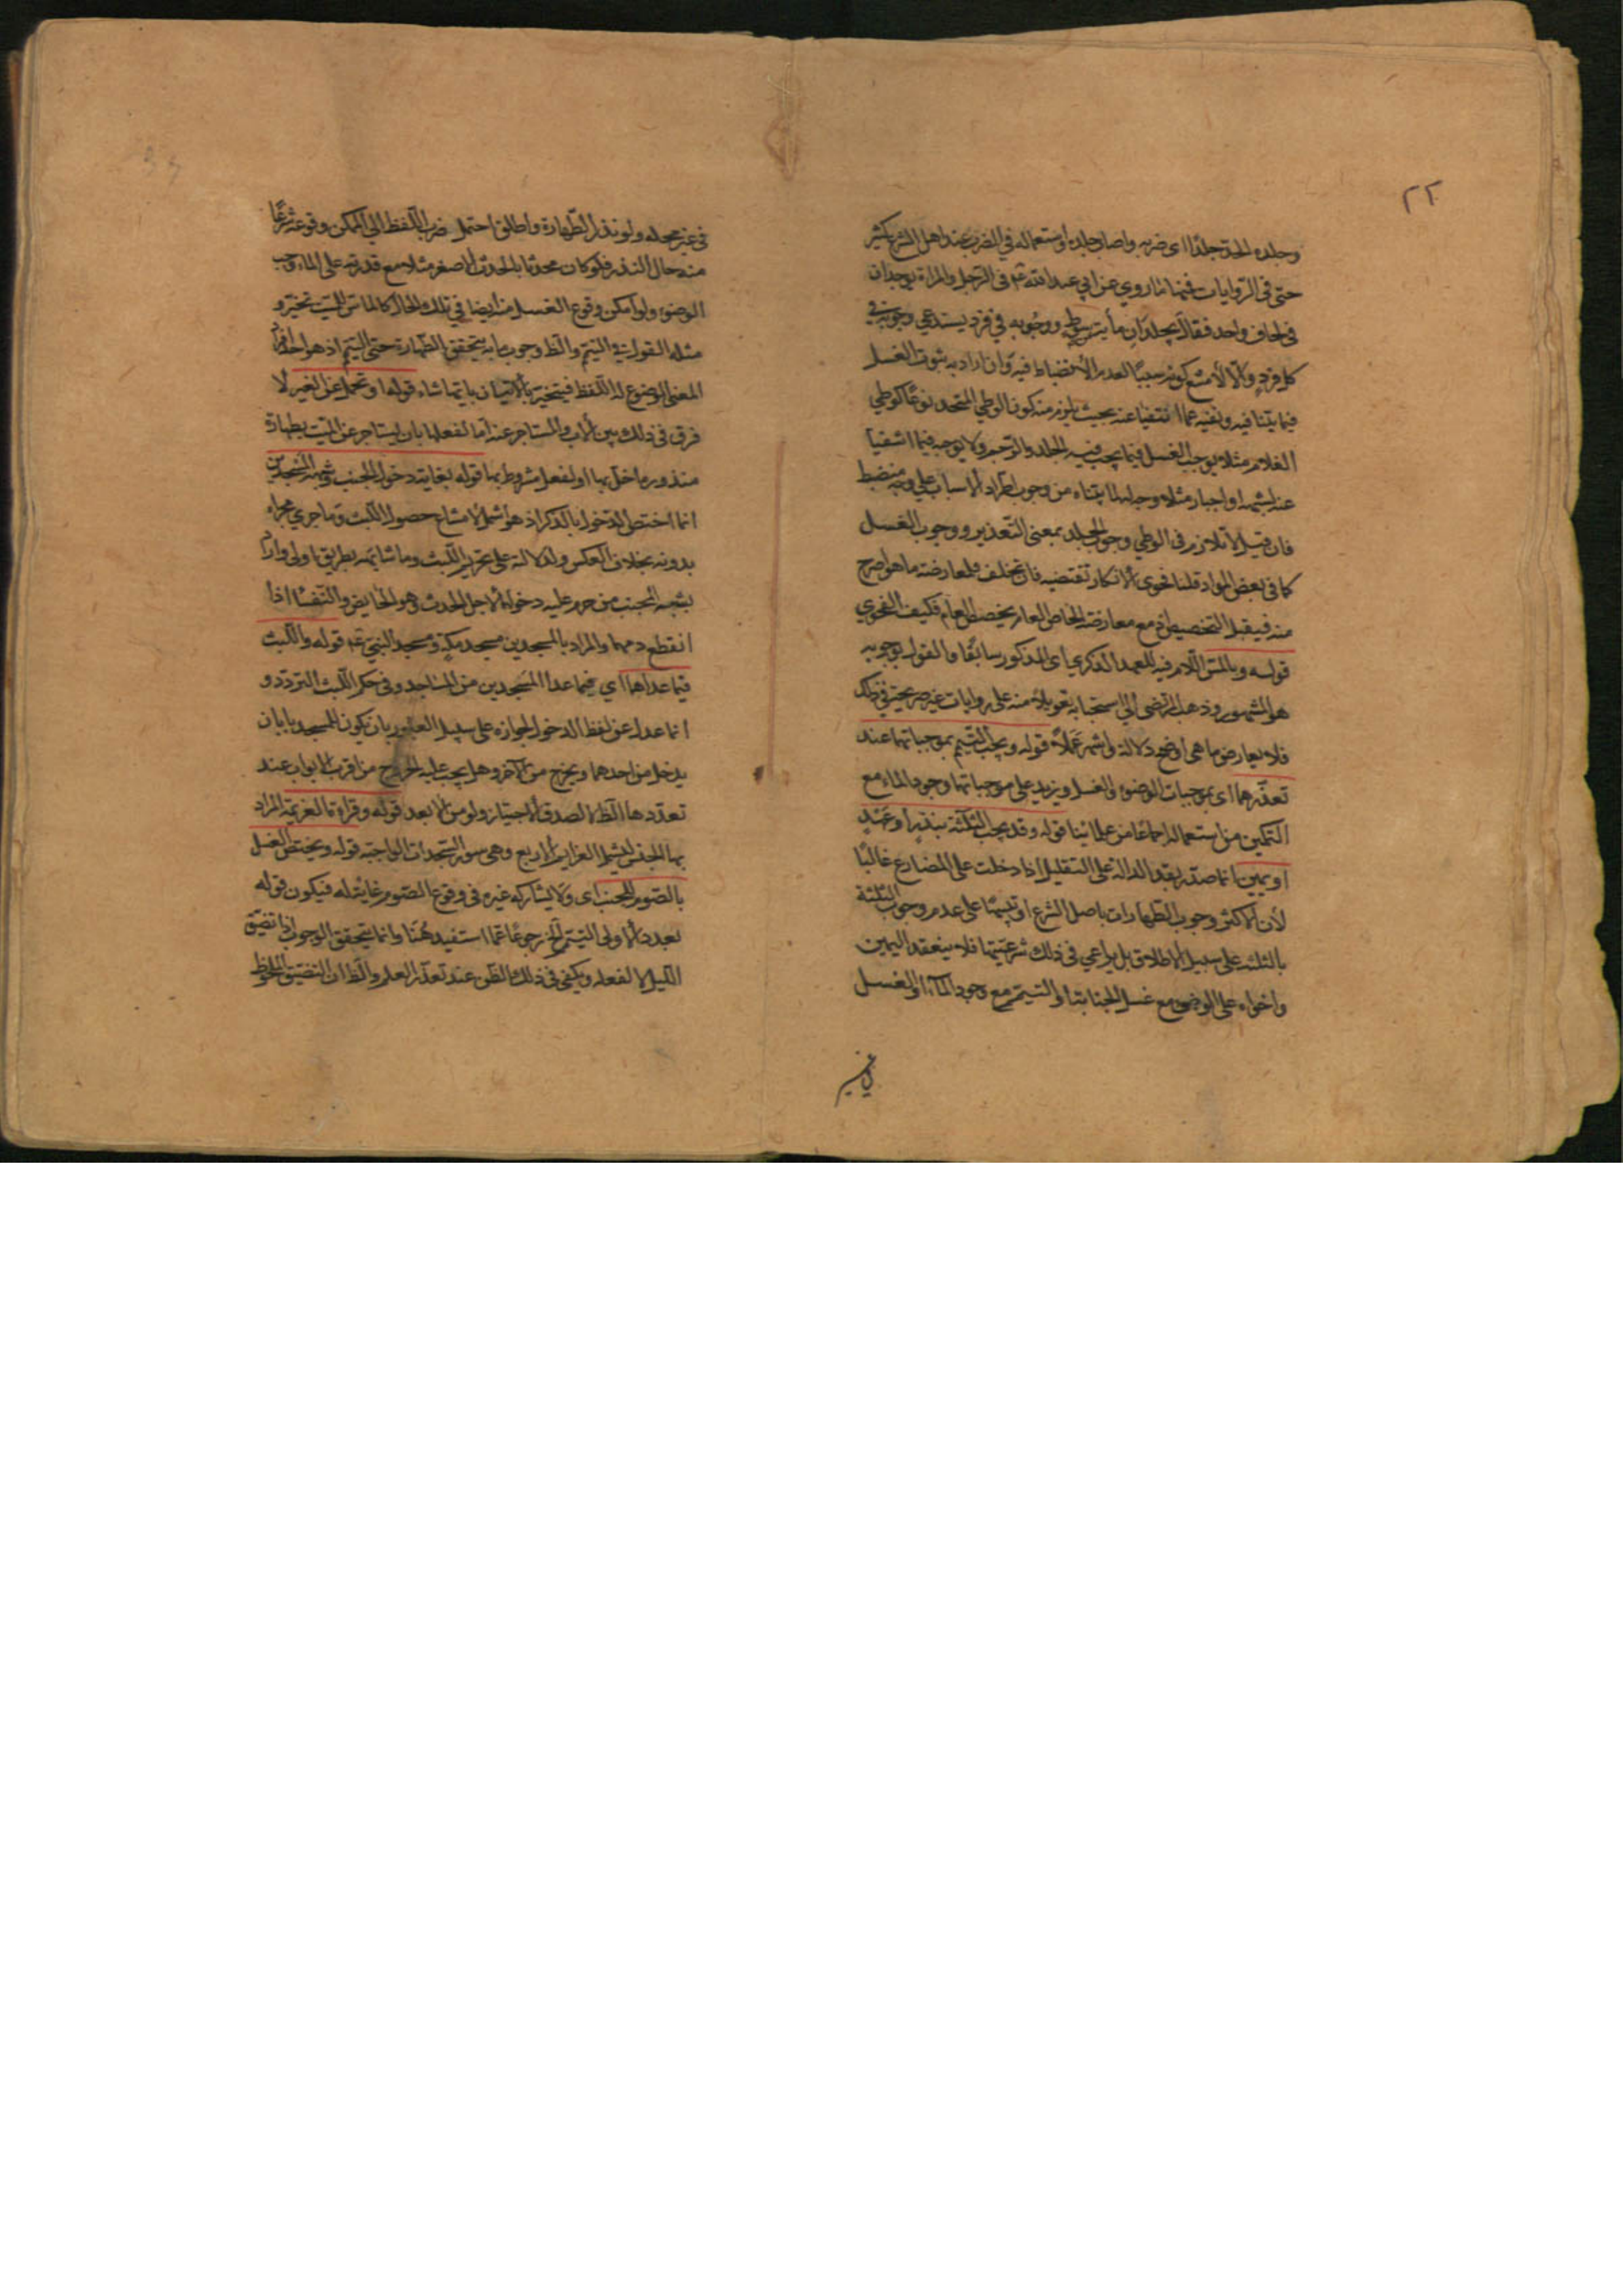 ٢٢
وجلده الحد جلدًا اى ضربه واصاب جلده واستعماله في الضرب عند اهل الشرع كثير
حتى فى الروايات فمنها ما روي عن ابي عبد الله عم فى الرجل والمراة يوجدان
فى لحاف واحد فقال يجلدان مأية سوط ووجوبه في فرد يستدعي وجوبه في
كل فرد والا لأمتنع كونه سببًا لعدم الأنضباط فيه وان اراد به ثبوت الغسل
فيما يثبتا فيه ونفيه عما انتفيا عنه بحيث يلزم منه كون الوطي المتحد نوعًا كوطي
الغلام مثلا يوجب الغسل فيما يجب فيه الجلد والرجم ولا يوجبه فيما انتفيا
عنه لشبهة او اجبار مثلا وجب لما بيناه من وجوب اطراد الاسباب على وجه منضبط
فان قيل لا تلازم فى الوطي وجوب الجلد بمعنى التعذير ووجوب الغسل
كما فى بعض المواد قلنا فحوى الانكار تقتضيه فان تخلف فلمعارضة ما هو اصرح
منه فيقبل التخصيص اذ مع معارضة الخاص العام يخصص العام فكيف الفحوي
قوله وبالمس اللام فيه للعهد الذكري اى المذكور سابقًا والقول بوجوبه
هو المشهور وذهب المرتضى الي استحبابه تعويلًا منه على روايات غير صريحة في ذلك
فلا يعارض ما هى اوضح دلالة واشهر عملًا قوله ويجب التيمم بموجباتهما عند
تعذرهما اى بموجبات الوضوء والغسل ويزيد على موجباتهما وجود الماء مع
التمكين من استعماله اجماعًا من علمائنا قوله وقد يجب الثلثة بنذر او عهد
او يمين انما صدر بقد الدالة على التقليل اذا دخلت على المضارع غالبًا
لأن الاكثر وجوب الطهارات باصل الشرع او تنبيهًا على عدم وجوب الثلثة
بالثلثه على سبيل الاطلاق بل يراعي فى ذلك شرعيتها فلا ينعقد اليمين
واخواه على الوضوء مع غسل الجنابة او التيمم مع وجود الماء او الغسل
في غير
فى غير محله ولو نذر الطهارة واطلق احتمل ضرب اللفظ الي الممكن وقوعه شرعًا
منه حال النذر فلو كان محدثا بالحدث الاصغر مثلا مع قدرته على الماء وجب
الوضوء ولو امكن وقوع الغسل منه ايضا في تلك الحال كالماس للميت تخير و
مثله القول في التيمم والظ وجوب ما به يتحقق الطهارة حتى التيمم اذ هو احد افراد
المعنى الموضوع له اللفظ فيتخير بالاتيان بايتها شاء قوله او تحمل عن الغير لا
فرق فى ذلك بين الاب والمستاجر عنه اما لفعلها بان يستاجر عن الميت بطهارة
منذورة اخل بها او لفعل مشروط بها قوله بغايته دخول الجنب وشبهه المسجدين
انما اختص الدخول بالذكر اذ هو اشمل لامتناع حصول اللبث وما جري مجراه
بدونه بخلاف العكس ولدلالته على تحريم اللبث وما شابهه بطريق اولى واراد
بشبه الجنب من حرم عليه دخوله لاجل الحدث وهو الحايض والنفساء اذا
انقطع دمهما والمراد بالمسجدين مسجد مكة ومسجد النبي عم قوله واللبث
فيما عداهما اي فيما عدا المسجدين من المساجد وفى حكم اللبث التردد و
انما عدل عن لفظ الدخول لجوازه على سبيل العبور بان يكون للمسجد بابان
يدخل من احدهما ويخرج من الآخر وهل يجب عليه الخروج من اقرب الابواب عند
تعددها الظ لا لصدق الاجتياز ولو من الابعد قوله وقراءة العزيمة المراد
بها الجنس ليشمل العزايم الاربع وهي سور السجدات الواجبة قوله ويختص الغسل
بالصوم للجنب اى ولا يشاركه غيره فى وقوع الصوم غاية له فيكون قوله
بعد الأولى التيمم الخ رجوعًا عما استفيد هُنا وانما يتحقق الوجوب اذا تضيق
الليل الا لفعله ويكفى فى ذلك الظن عند تعذر العلم والظ ان التضيق الملحوظ